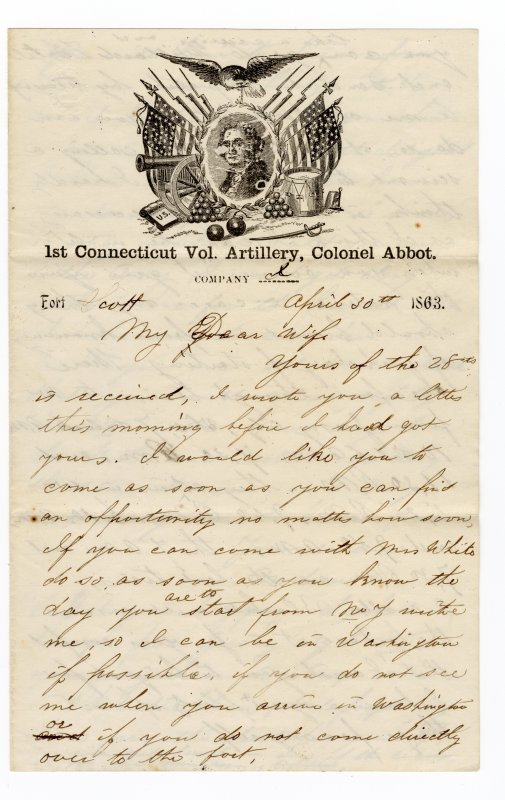 U.S.
1st Connecticut Vol. Artillery, Colonel Abbot.
COMPANY
Fort Scott April 30th 1863.
My Dear Wife
Yours of the 28th
is received, I wrote you a letter
this morning before I had got
yours. I would like you to
come as soon as you can find
an opportunity no matter how soon,
If you can come with Mrs White
do so, as soon as you know the
day you are to start from N Y write
me, so I can be in Washington
if possible, if you do not see
me when you arrive in Washington
or if you do not come directly
over to the fort,